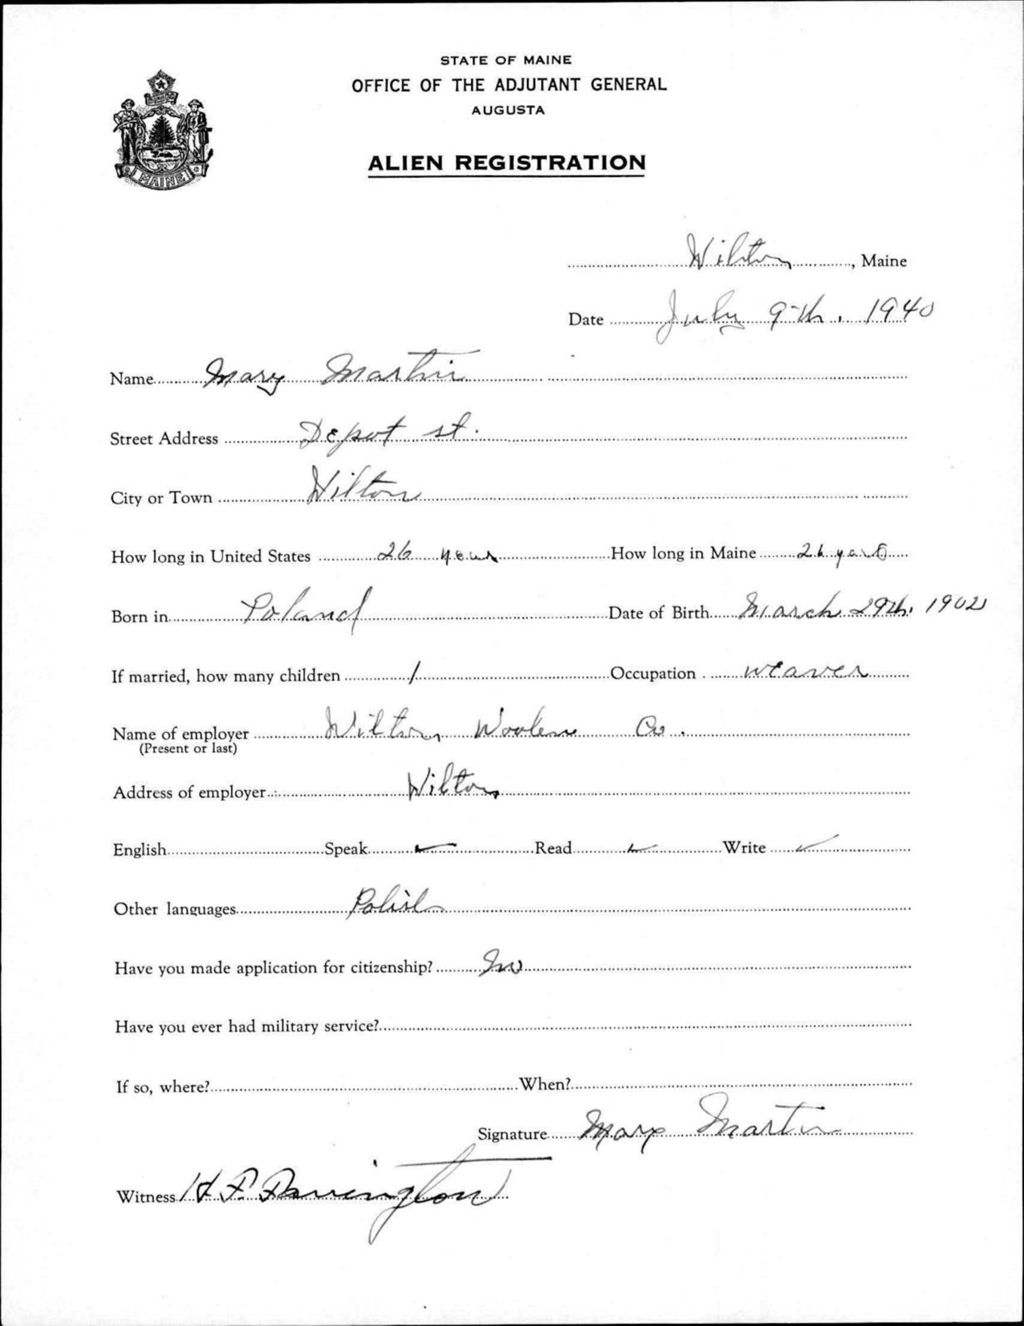 STATE OF MAINE
OFFICE OF THE ADJUTANT GENERAL
AUGUSTA
ALIEN REGISTRATION
MAINE
Wilton, Maine
Date July 9th, 1940
Name Mary Martin
Street Address Depot st.
City or Town Wilton
How long in United States 26 years How long in Maine 26 years
Born in Poland Date of Birth March 29th, 1902
If married, how many children 1 Occupation weaver
Name of employer Wilton Woolen Co.
(Present or last)
Address of employer Wilton
English Speak ✓ Read ✓ Write ✓
Other languages Polish
Have you made application for citizenship? No
Have you ever had military service?
If so, where? When?
Signature Mary Martin
Witness H F